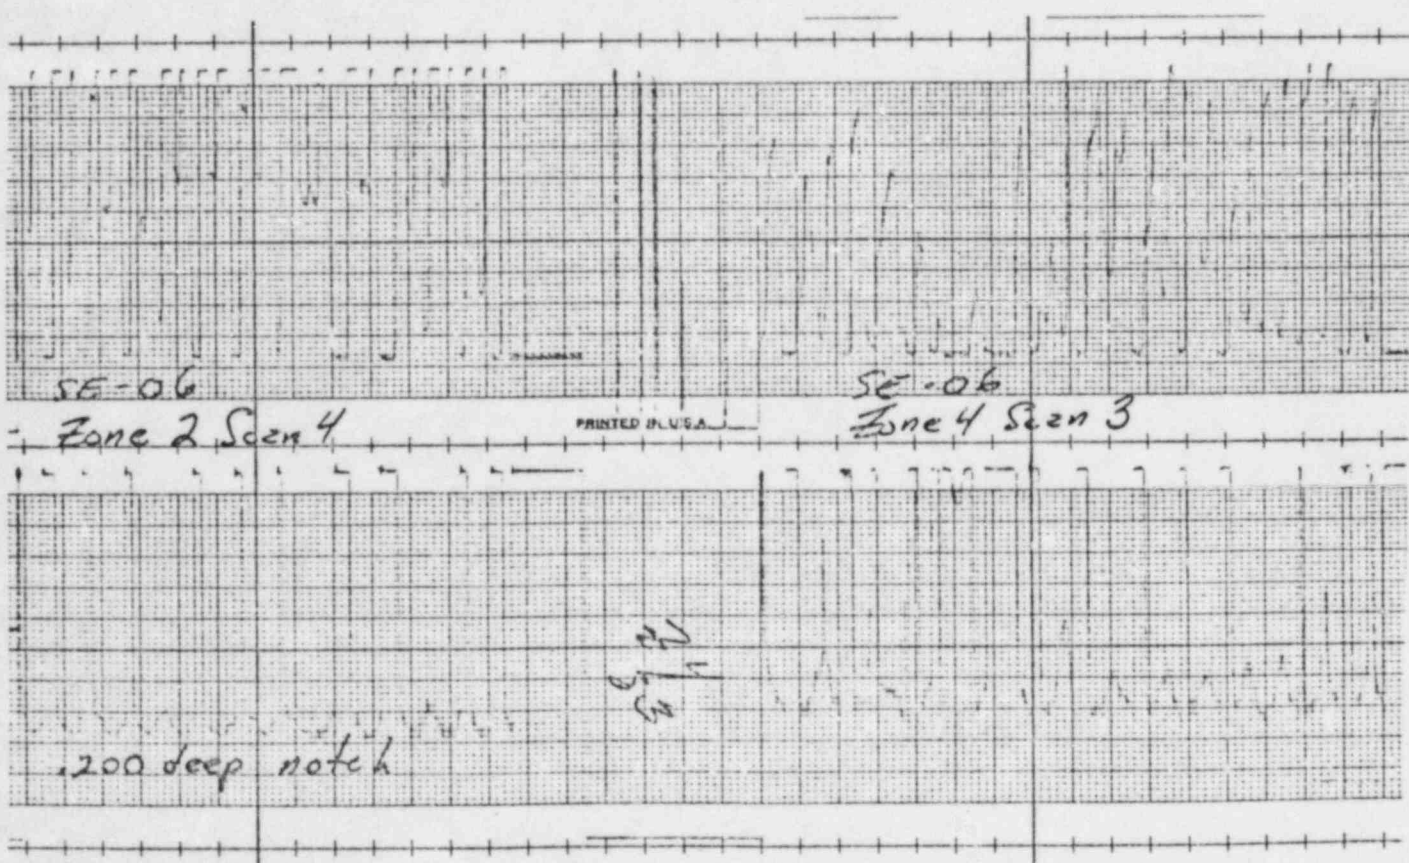 SE-06
Zone 2 Scan 4
PRINTED IN U.S.A.
SE-06
Zone 4 Scan 3
.200 deep notch